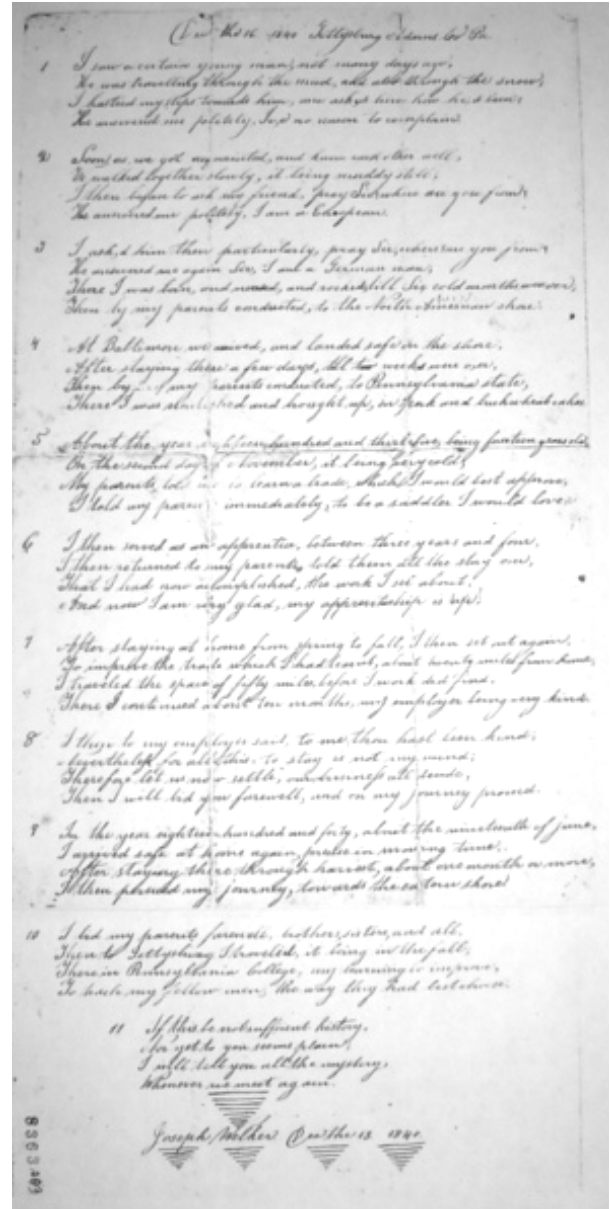 Dec the 16 1840 Gettysburg Adams Co Pa
1 I saw a certain young man, not many days ago,
He was travelling through the mud, and also through the snow,
I hasted my steps towards him, and ask,d him how he,d been,
He answered me politely, I,v,d no reason to complain
2 Soon as we got acquainted, and knew each other well,
We walked together slowly, it being muddy still,
I then began to ask my friend, pray Sir, where are you from,
He answered me politely, I am a European.
3 I ask,d him then particularly, pray Sir, where are you from,
He answered me again Sir, I am a German man,
There I was born, and nursed, and rocked, till Six cold months were over,
Then by my parents conducted, to the North American shore.
4 At Baltimore we arrived, and landed safe on the shore,
After staying there a few days, till two weeks were over,
Then by my parents conducted, to Pennsylvania state,
There I was and brought up, on and buckwheat cakes
5 About the year eighteen hundred and thirty five, being fourteen years old,
On the second day of November, it being very cold,
My parents told me to learn a trade, which I would best approve,
I told my parents immediately, to be a saddler I would love.
6 I then served as an apprentice, between three years and four,
I then returned to my parents, told them all the story over,
That I had now accomplished, the work I set about,
And now I am very glad, my apprenticeship is up.
7 After staying at home from spring to fall, I then set out again,
To improve the trade which I had learnt, about twenty miles from home,
I traveled the space of fifty miles, before I work did find,
There I continued about ten months, my employer being very kind.
8 I then to my employer said, to me thou hast been kind,
Nevertheless for all this, to stay is not my mind,
Therefore let us now settle, our business all
Then I will bid you farewell, and on my journey proceed.
9 In the year eighteen hundred and forty, about the nineteenth of June,
I arrived safe at home again, in mowing time.
After staying there through harvest, about one month or more,
I then pursued my journey, towards the eastern shore
10 I bid my parents farewell, brothers, sisters, and all,
Then to Gettysburg I traveled, it being in the fall,
There in Pennsylvania College, my learning to improve,
To teach my fellow men, the way they had best choose.
11 If this be not sufficient history,
Nor yet to you seems plain,
I will tell you all the mystery,
Whenever we meet again.
Joseph Welker Dec the 18 1840